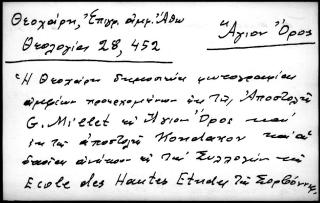 Θεοχάρη, Ἐπιγρ. ἀμφ. Ἄθω
Θεολογία 28, 452
Ἅγιον Ὄρος
Ἡ Θεοχάρη δημοσιεύει φωτογραφίαι
ἀμφίων προερχομένων ἐκ τῆς Ἀποστολῆς
G. Millet εἰς Ἅγιον Ὄρος καὶ
ἐκ τῆς ἀποστολῆς Kondakov καὶ αἱ
ὁποῖαι ἀνήκουν εἰς τὴν Συλλογὴν τῆς
Ecole des Hautes Etudes τῆς Σορβόννης